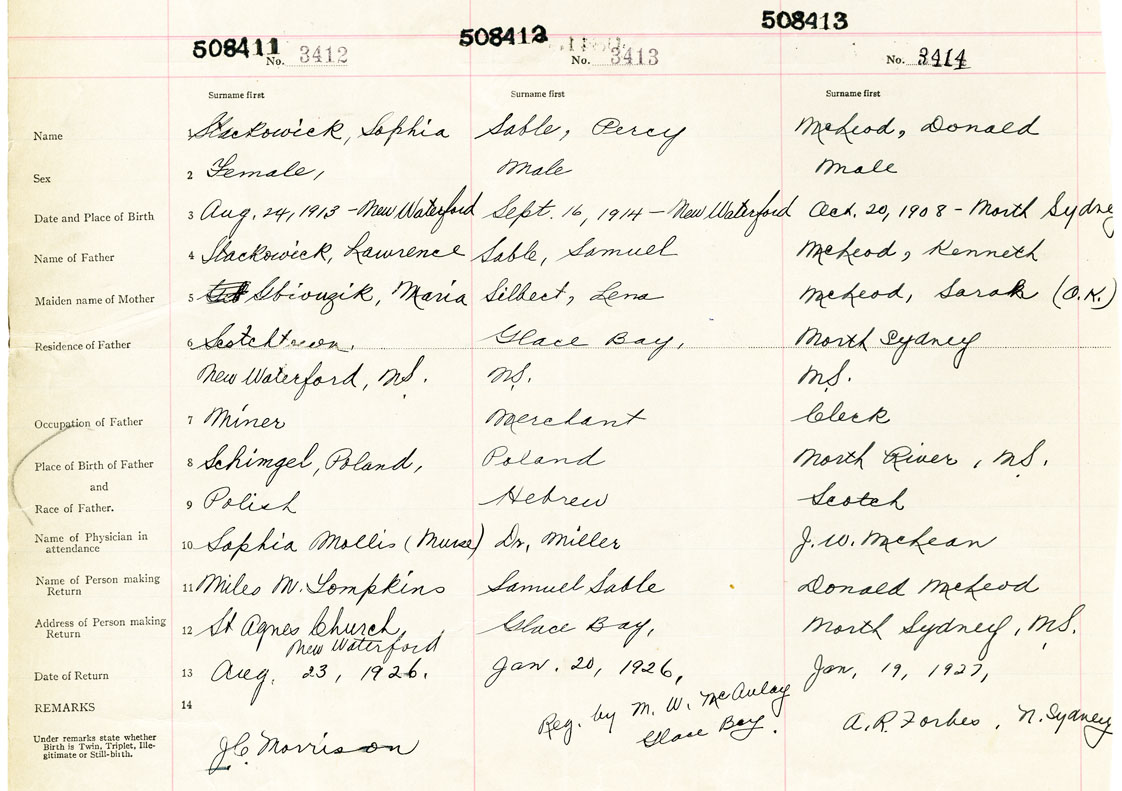 508411 508412 508413
No. 3412 No. 3413 No. 3414
Surname first Surname first Surname first
Name 1 Slackowick, Sophia Sable, Percy McLeod, Donald
Sex 2 Female, Male Male
Date and Place of Birth 3 Aug. 24, 1913 - New Waterford Sept. 16, 1914 - New Waterford Oct. 20, 1908 - North Sydney
Name of Father 4 Slackowick, Lawrence Sable, Samuel McLeod, Kenneth
Maiden name of Mother 5 Maria Silbert, Lena McLeod, Sarah (O.K.)
Residence of Father 6 Scotchtown, Glace Bay, North Sydney
New Waterford, N.S. N.S. N.S.
Occupation of Father 7 Miner Merchant Clerk
Place of Birth of Father 8 Schimgel, Poland, Poland North River, N.S.
and
Race of Father. 9 Polish Hebrew Scotch
Name of Physician in
attendance 10 Sophia Mollis (Nurse) Dr. Miller J. W. McLean
Name of Person making
Return 11 Miles N. Tompkins Samuel Sable Donald McLeod
Address of Person making
Return 12 St Agnes Church, Glace Bay, North Sydney, N.S.
New Waterford
Date of Return 13 Aug. 23, 1926. Jan. 20, 1926, Jan. 19, 1927,
REMARKS 14
Under remarks state whether
Birth is Twin, Triplet, Ille-
gitimate or Still-birth.
J.C. Morrison
Reg. by M. W. McAulay
Glace Bay.
A. R. Forbes, N. Sydney